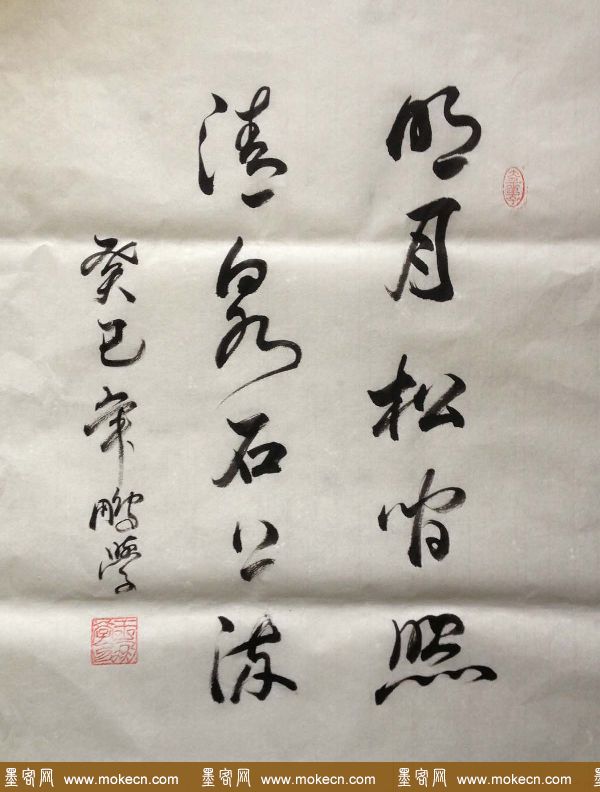 明月松间照
清泉石上流
癸巳年鹏学
墨客网 www.mokecn.com 墨客网 www.mokecn.com 墨客网 www.mokecn.com 墨